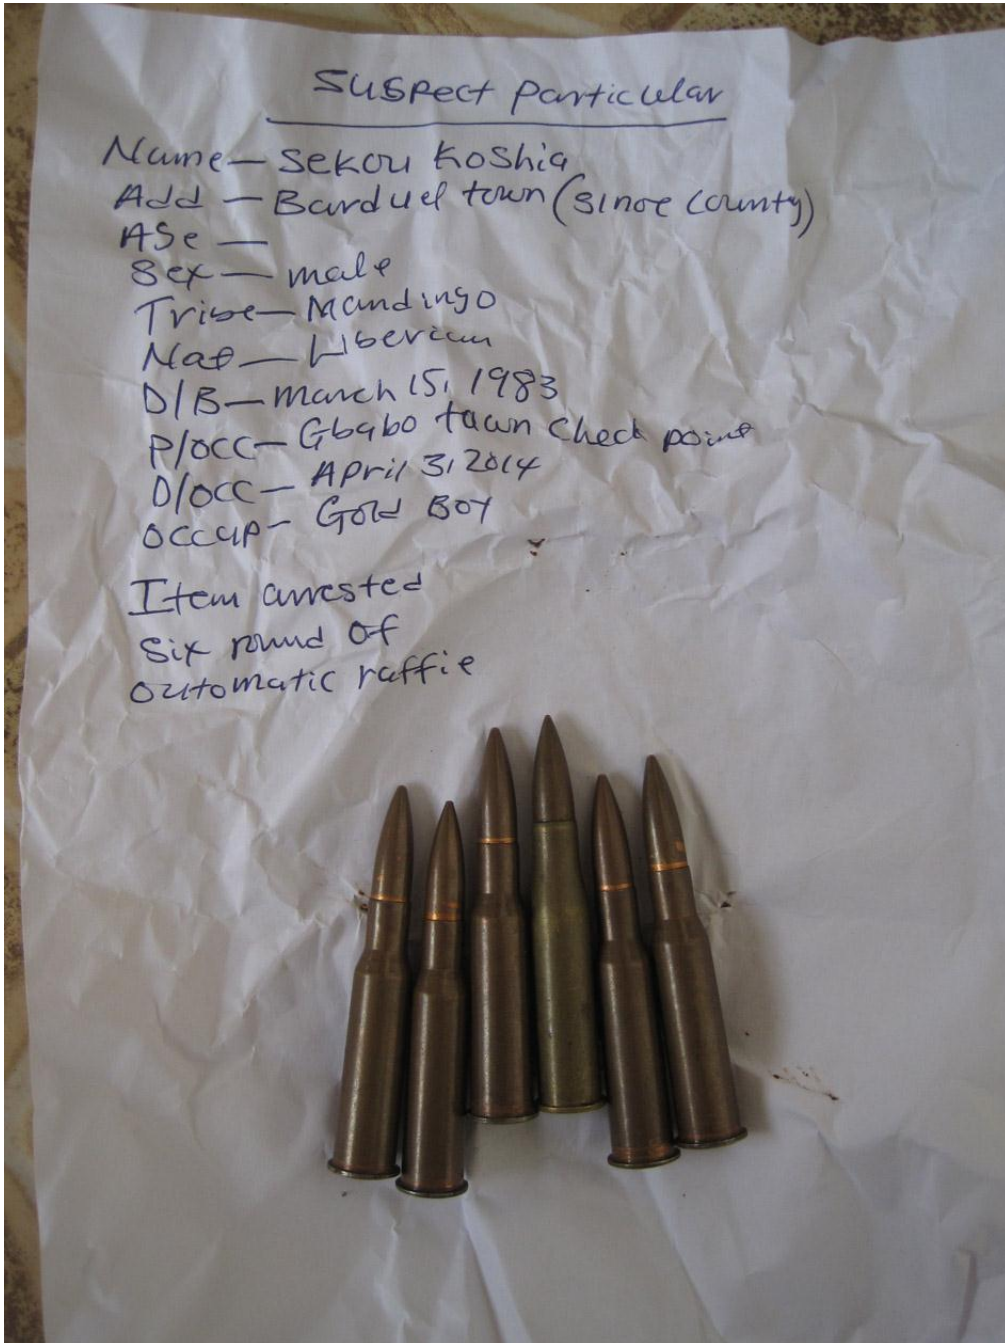 Suspect particular
Name — Sekou Koshia
Add — Barduel town (Sinoe County)
Age —
Sex — male
Tribe — Mandingo
Nat — Liberian
D/B — March 15, 1983
P/OCC — Gbabo town Check point
D/OCC — April 3, 2014
OCCUP — Gold Boy
Item arrested
Six round of
automatic raffie